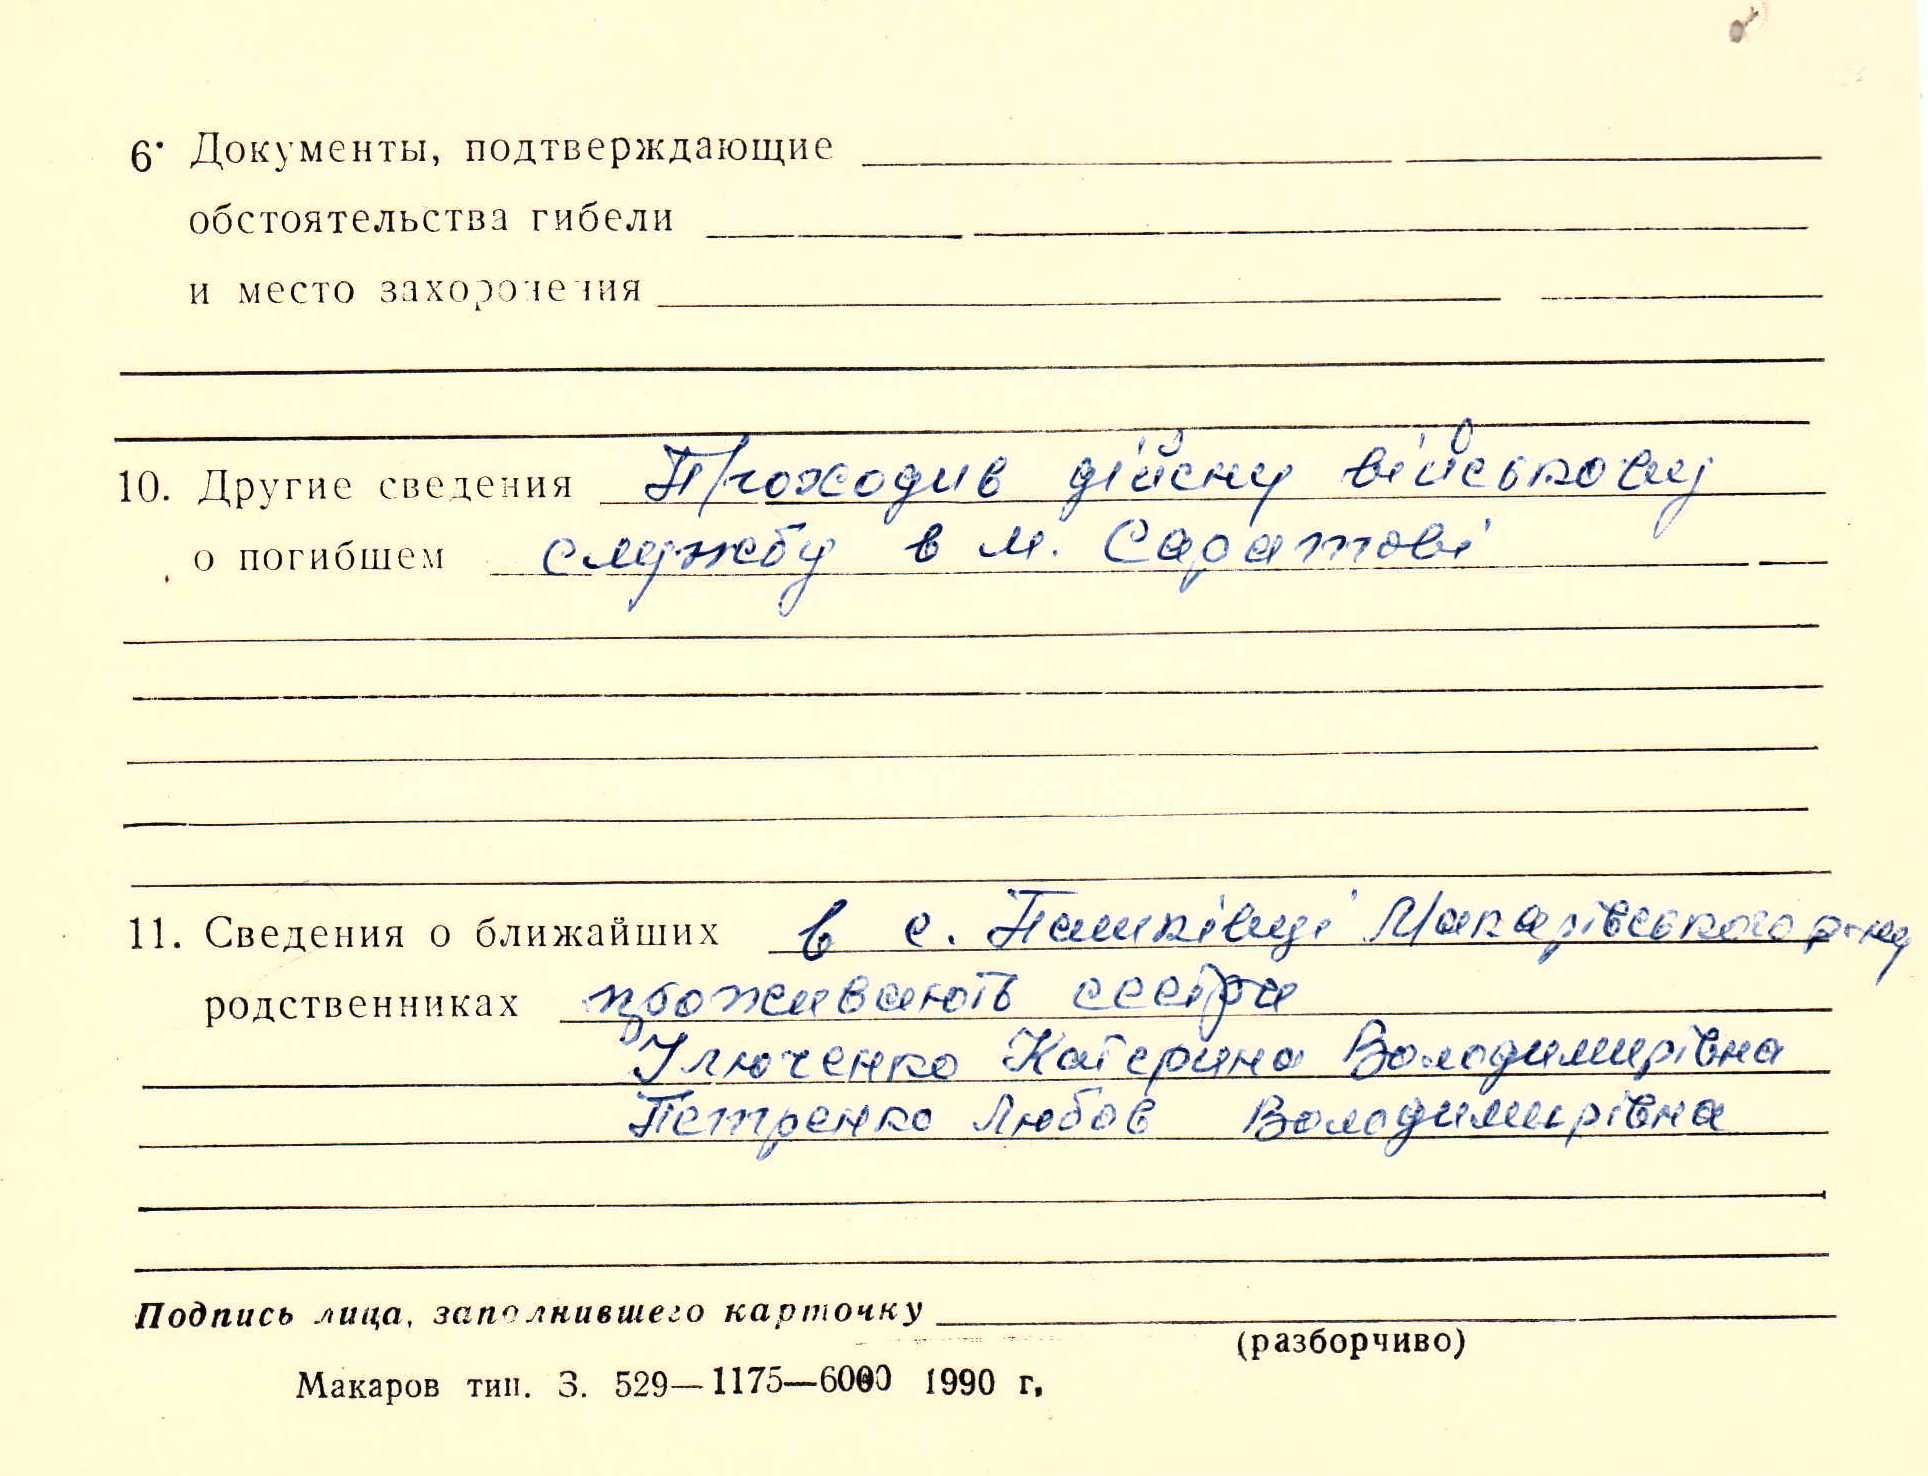 6. Документы, подтверждающие
обстоятельства гибели
и место захоронения
10. Другие сведения Проходив дійсну військову
о погибшем службу в м. Саратові
11. Сведения о ближайших в с. Пашківці Макарівського р-ну
родственниках проживають сестри
Ілюченко Катерина Володимирівна
Петренко Любов Володимирівна
Подпись лица, заполнившего карточку
(разборчиво)
Макаров тип. З. 529—1175—6000 1990 г.